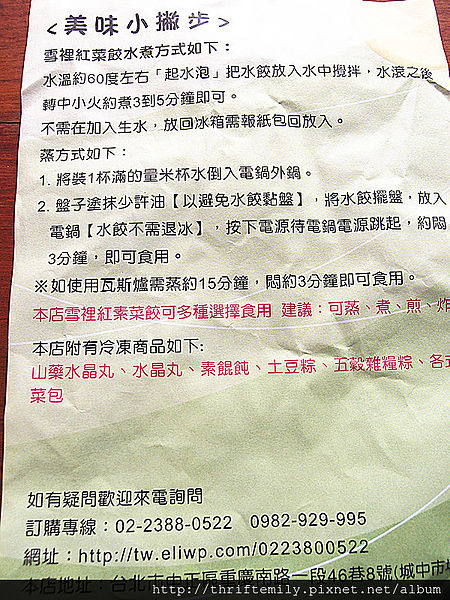 <美味小撇步>
雪裡紅菜餃水煮方式如下：
水溫約60度左右「起水泡」把水餃放入水中攪拌，水滾之後
轉中小火約煮3到5分鐘即可。
不需在加入生水，放回冰箱需報紙包回放入。
蒸方式如下：
1. 將裝1杯滿的量米杯水倒入電鍋外鍋。
2. 盤子塗抹少許油【以避免水餃黏盤】，將水餃擺盤，放入
電鍋【水餃不需退冰】，按下電源待電鍋電源跳起，約悶
3分鐘，即可食用。
※如使用瓦斯爐需蒸約15分鐘，悶約3分鐘即可食用。
本店雪裡紅素菜餃可多種選擇食用 建議：可蒸、煮、煎、炸
本店附有冷凍商品如下:
山藥水晶丸、水晶丸、素餛飩、土豆粽、五穀雜糧粽、各式
菜包
如有疑問歡迎來電詢問
訂購專線：02-2388-0522 0982-929-995
網址：http://tw.eliwp.com/0223800522
本店地址：台北市中正區重慶南路一段46巷8號(城中市場
http://thriftemily.pixnet.net/album